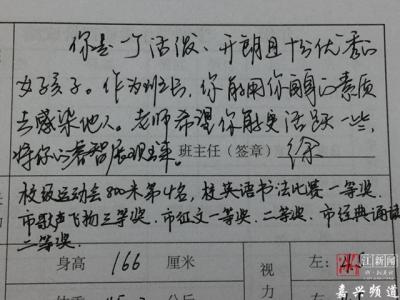 你是一个活泼、开朗且十分优秀的
女孩子。作为班长，你能用你自身的素质
去感染他人。老师希望你能更活跃一些，
将你的睿智展现出来。班主任（签章）徐
校级运动会800米第4名，校英语书法比赛一等奖，
市歌声飞扬三等奖，市征文一等奖、二等奖，市经典诵读
二等奖。
身高 166 厘米 视力 左：
体重 公斤 右：
江新闻
嘉兴频道